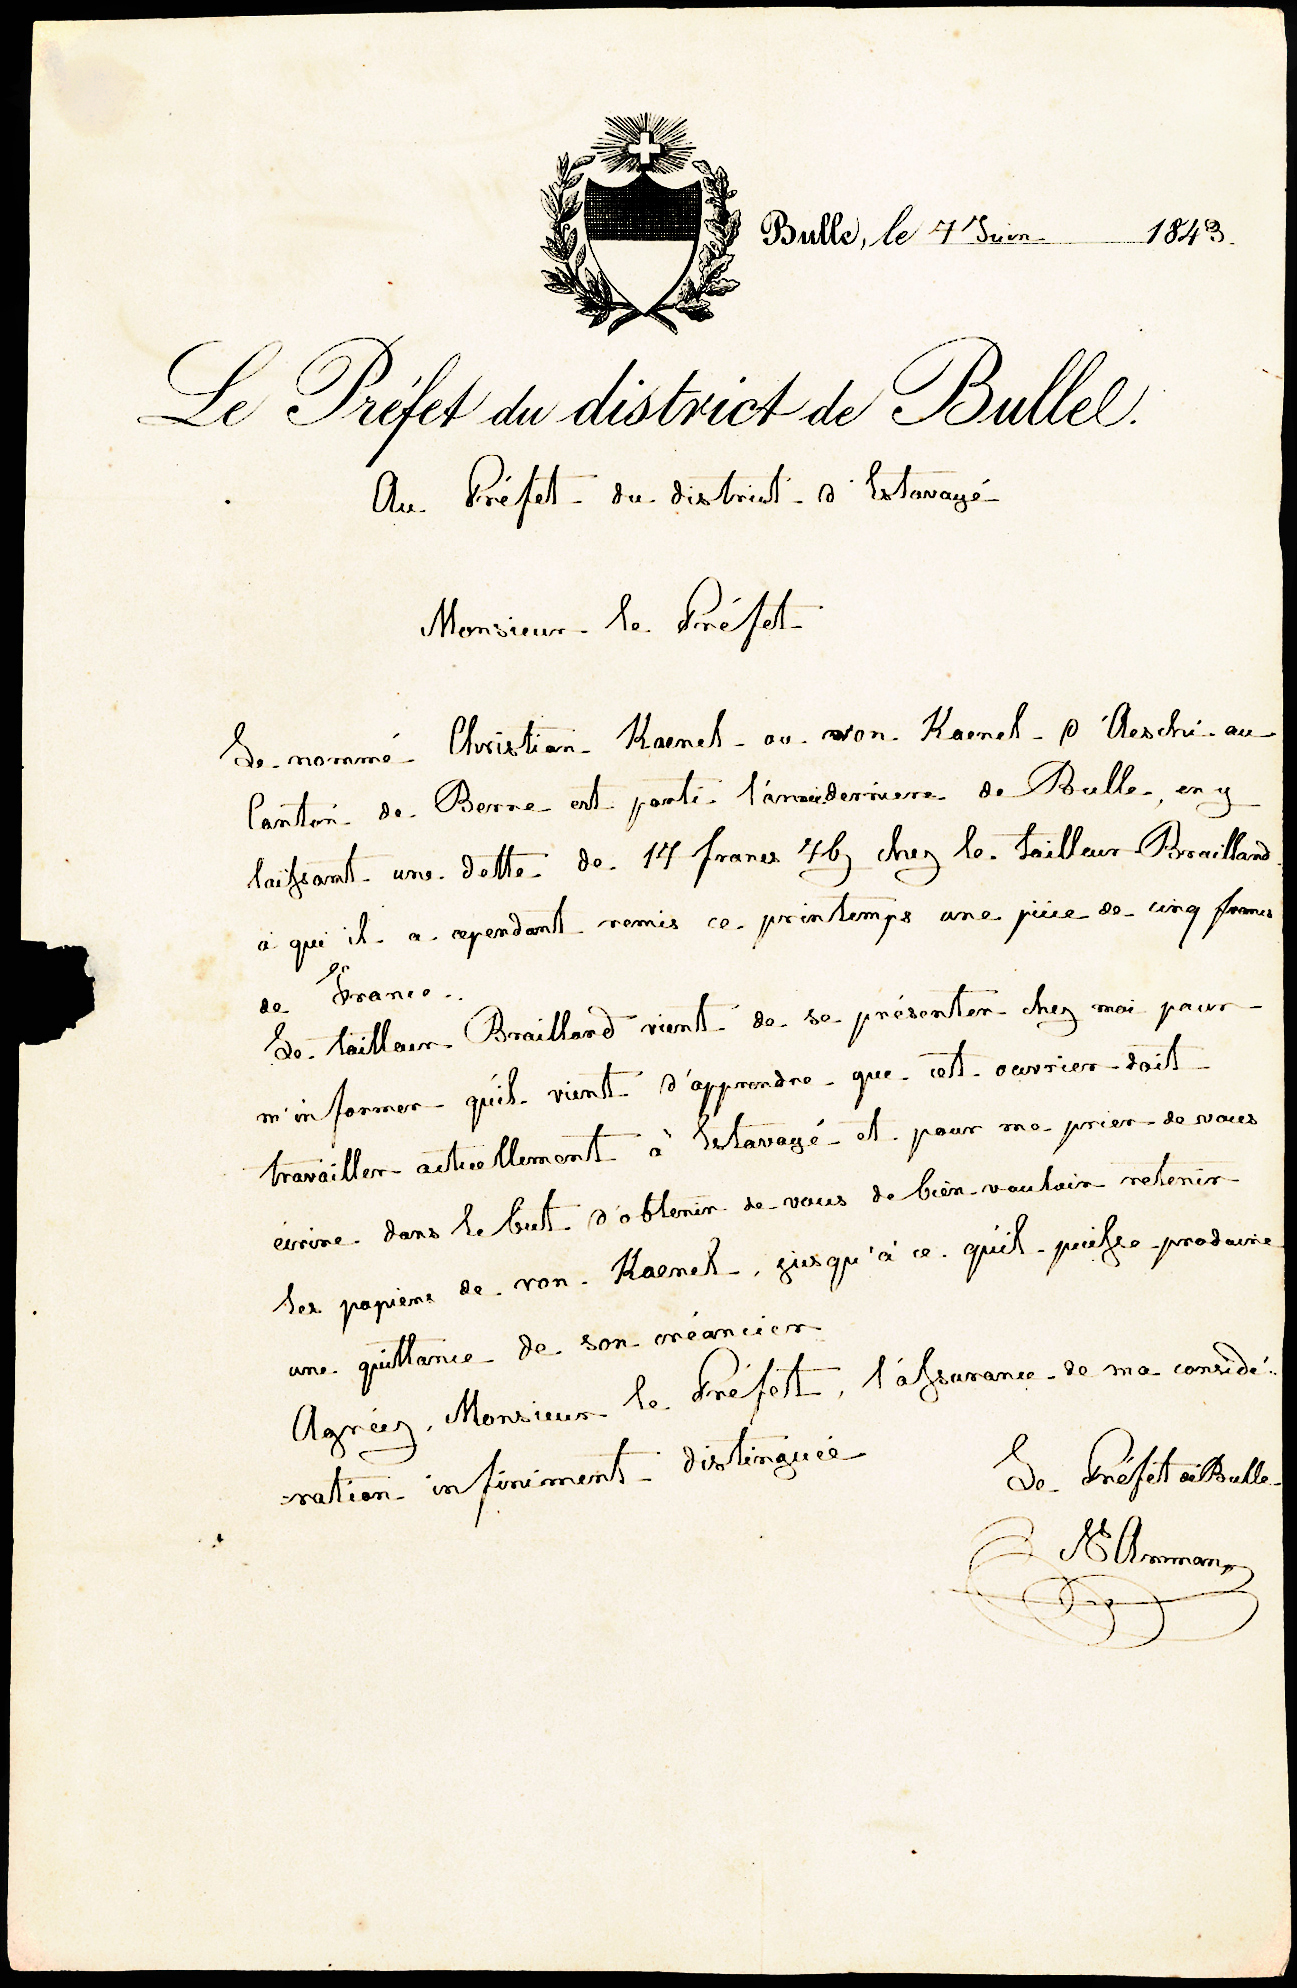 Bulle, le 7 Juin 1843.
Le Préfet du district de Bulle.
Au Préfet du district d'Estavayé
Monsieur le Préfet
Le nommé Christian Kaenel ou von Kaenel d'Aeschi au
Canton de Berne est parti l'année derniere de Bulle, en y
laissant une dette de 17 francs 7 bz chez le tailleur Brailland
à qui il a cependant remis ce printemps une pièce de cinq francs
de France.
Le tailleur Brailland vient de se présenter chez moi pour
m'informer qu'il vient d'apprendre que cet ouvrier doit
travailler actuellement à Estavayé et pour me prier de vous
écrire dans le but d'obtenir de vous de bien vouloir retenir
les papiers de von Kaenel, jusqu'à ce qu'il puisse produire
une quittance de son créancier
Agréez, Monsieur le Préfet, l'assurance de ma considé-
-ration infiniment distinguée
Le Préfet de Bulle
Ns Amman